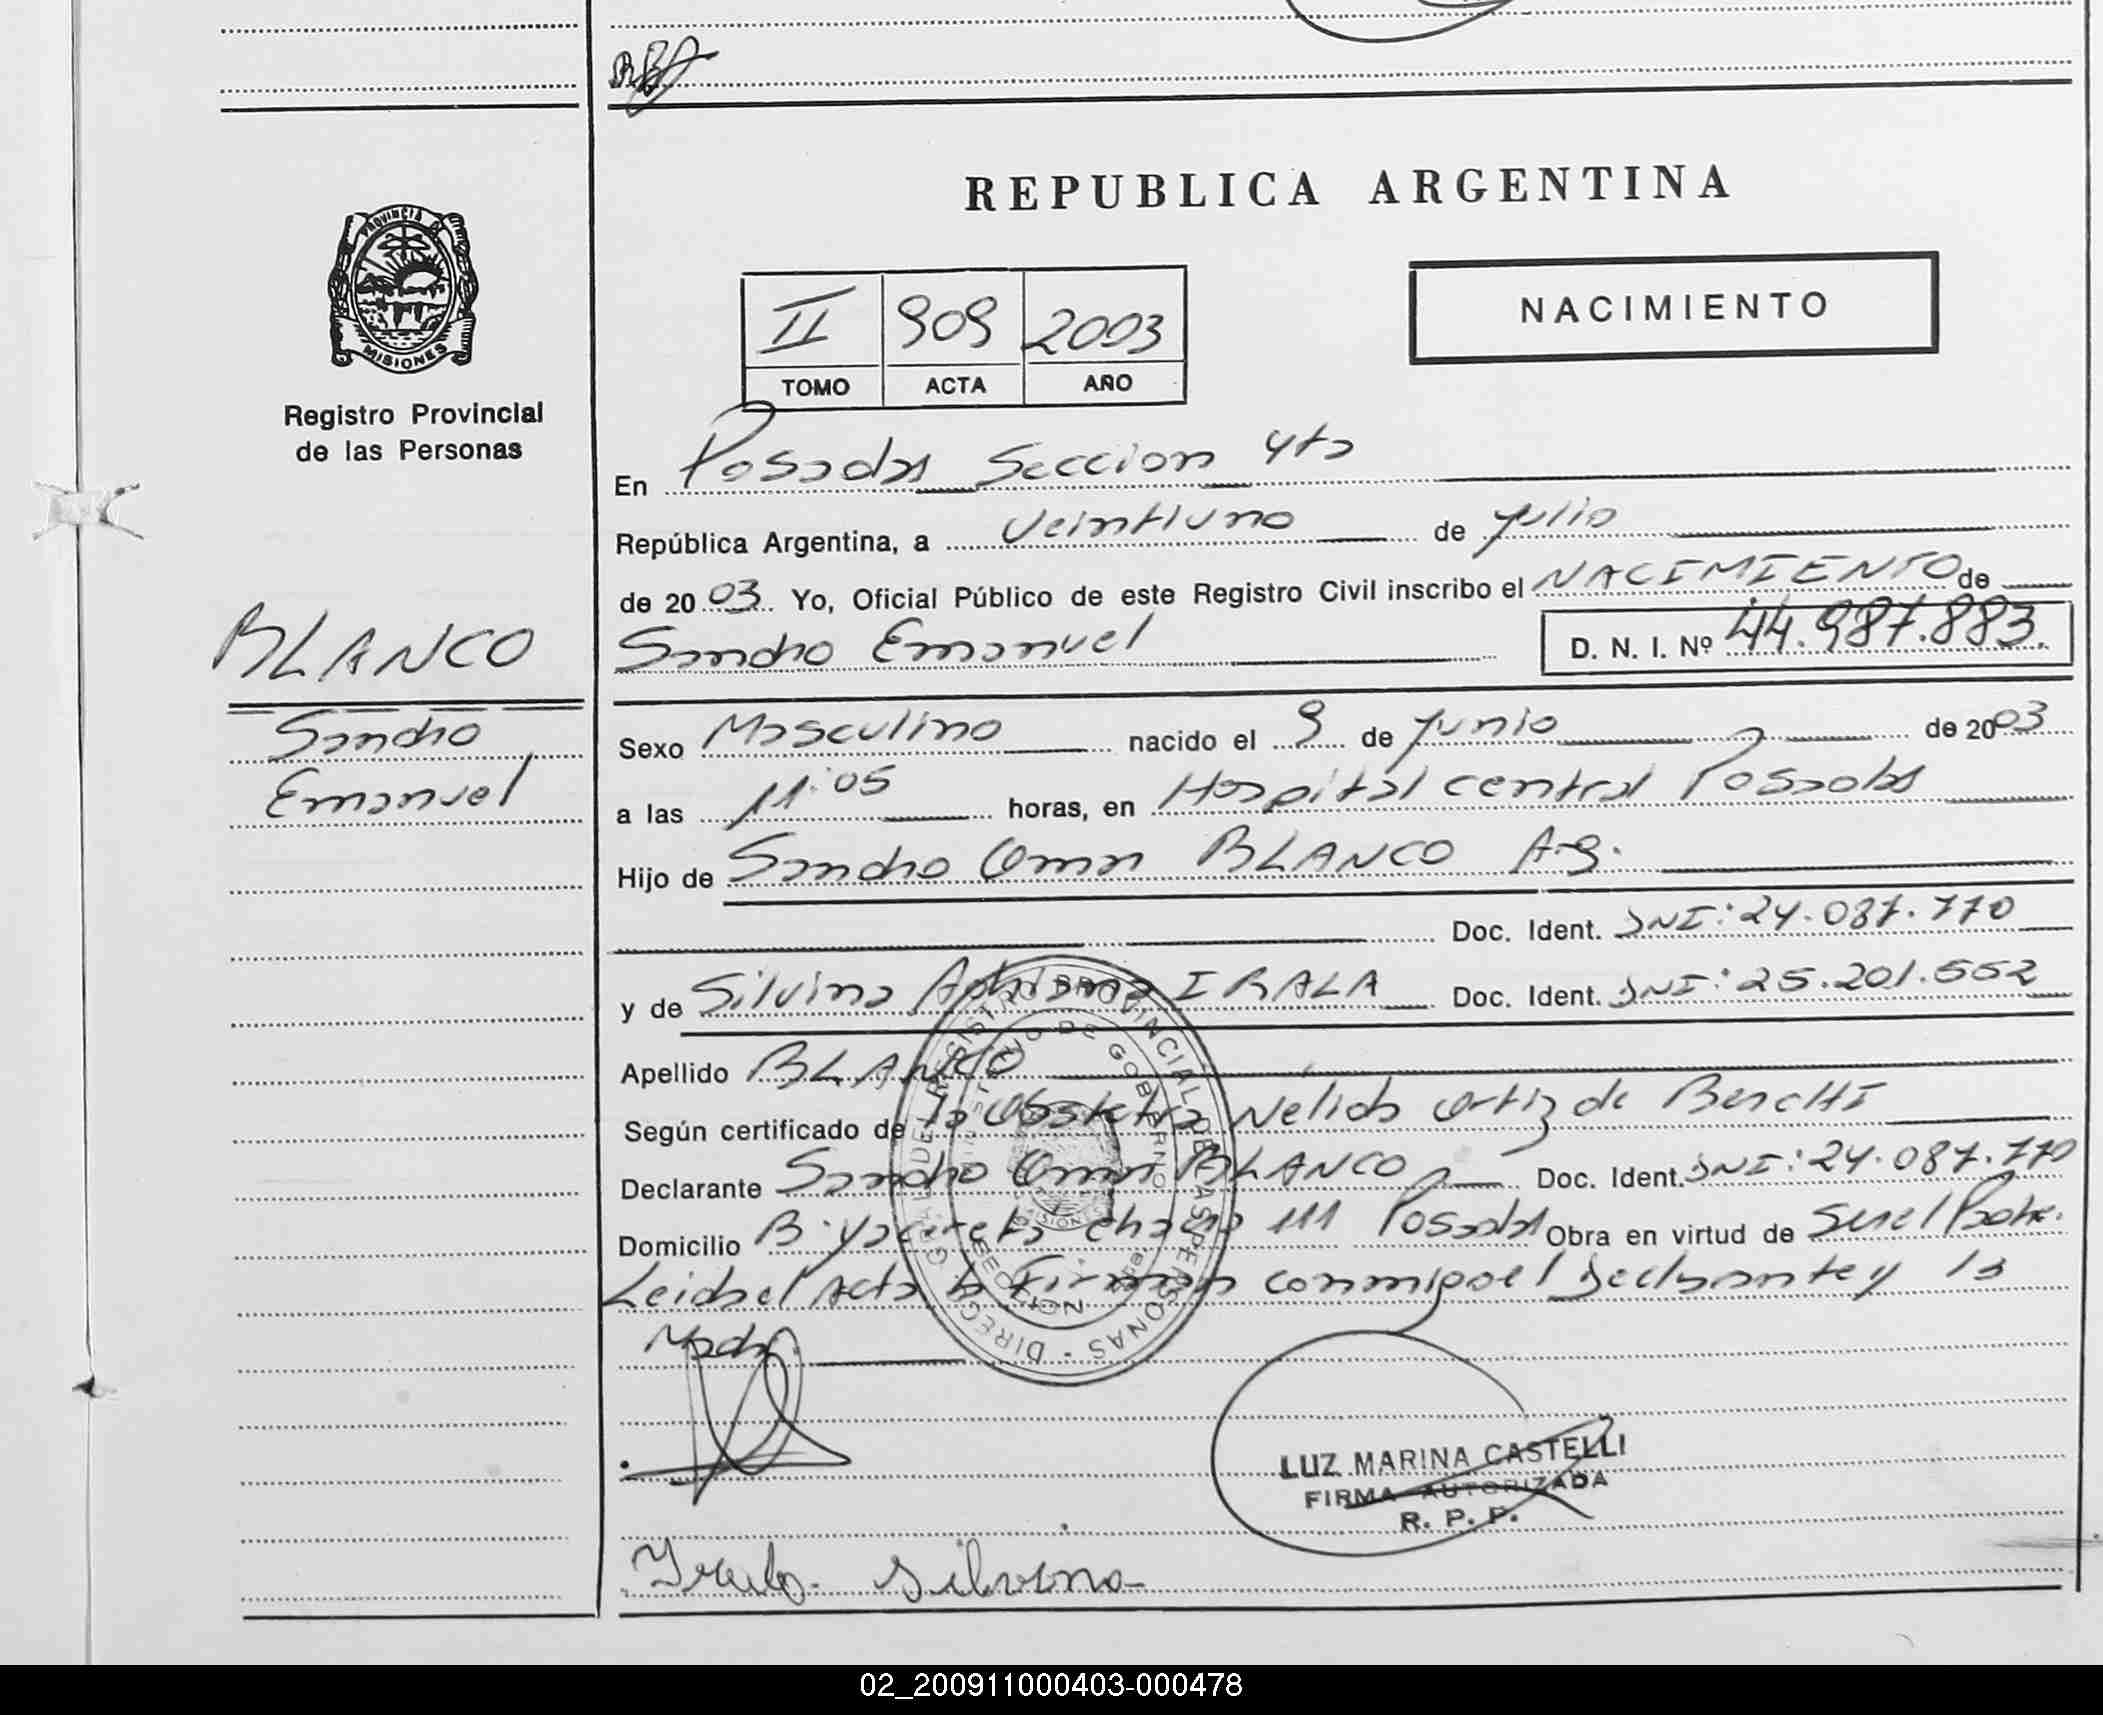 PROVINCIA DE
MISIONES
Registro Provincial
de las Personas
REPUBLICA ARGENTINA
NACIMIENTO
II 909 2003
TOMO ACTA AÑO
En Posadas Seccion 4ta
República Argentina, a Veintiuno de Julio
de 2003. Yo, Oficial Público de este Registro Civil inscribo el NACIMIENTO de
Sandro Emanuel D. N. I. Nº 44.987.883.
BLANCO
Sandro
Emanuel
Sexo Masculino nacido el 9 de Junio de 2003
a las 11:05 horas, en Hospital central Posadas
Hijo de Sandro Omar BLANCO A.g.
Doc. Ident. DNI: 24.087.770
y de Silvina Adriana IRALA Doc. Ident. DNI: 25.201.552
Apellido BLANCO
Según certificado de la Obstetra Nélida Ortiz de
Declarante Sandro Omar BLANCO Doc. Ident. DNI: 24.087.770
Domicilio B. Yacireta chacra 111 Posadas Obra en virtud de Ser el Padre.
Leida el Acta la Firman conmigo el Declarante y la
Madre
DIRECC. GRAL. DEL REGISTRO PROVINCIAL DE LAS PERSONAS
MINISTERIO DE GOBIERNO
MISIONES
SECCION 4ta.
LUZ MARINA CASTELLI
FIRMA AUTORIZADA
R. P. P.
Irala Silvina
02_200911000403-000478